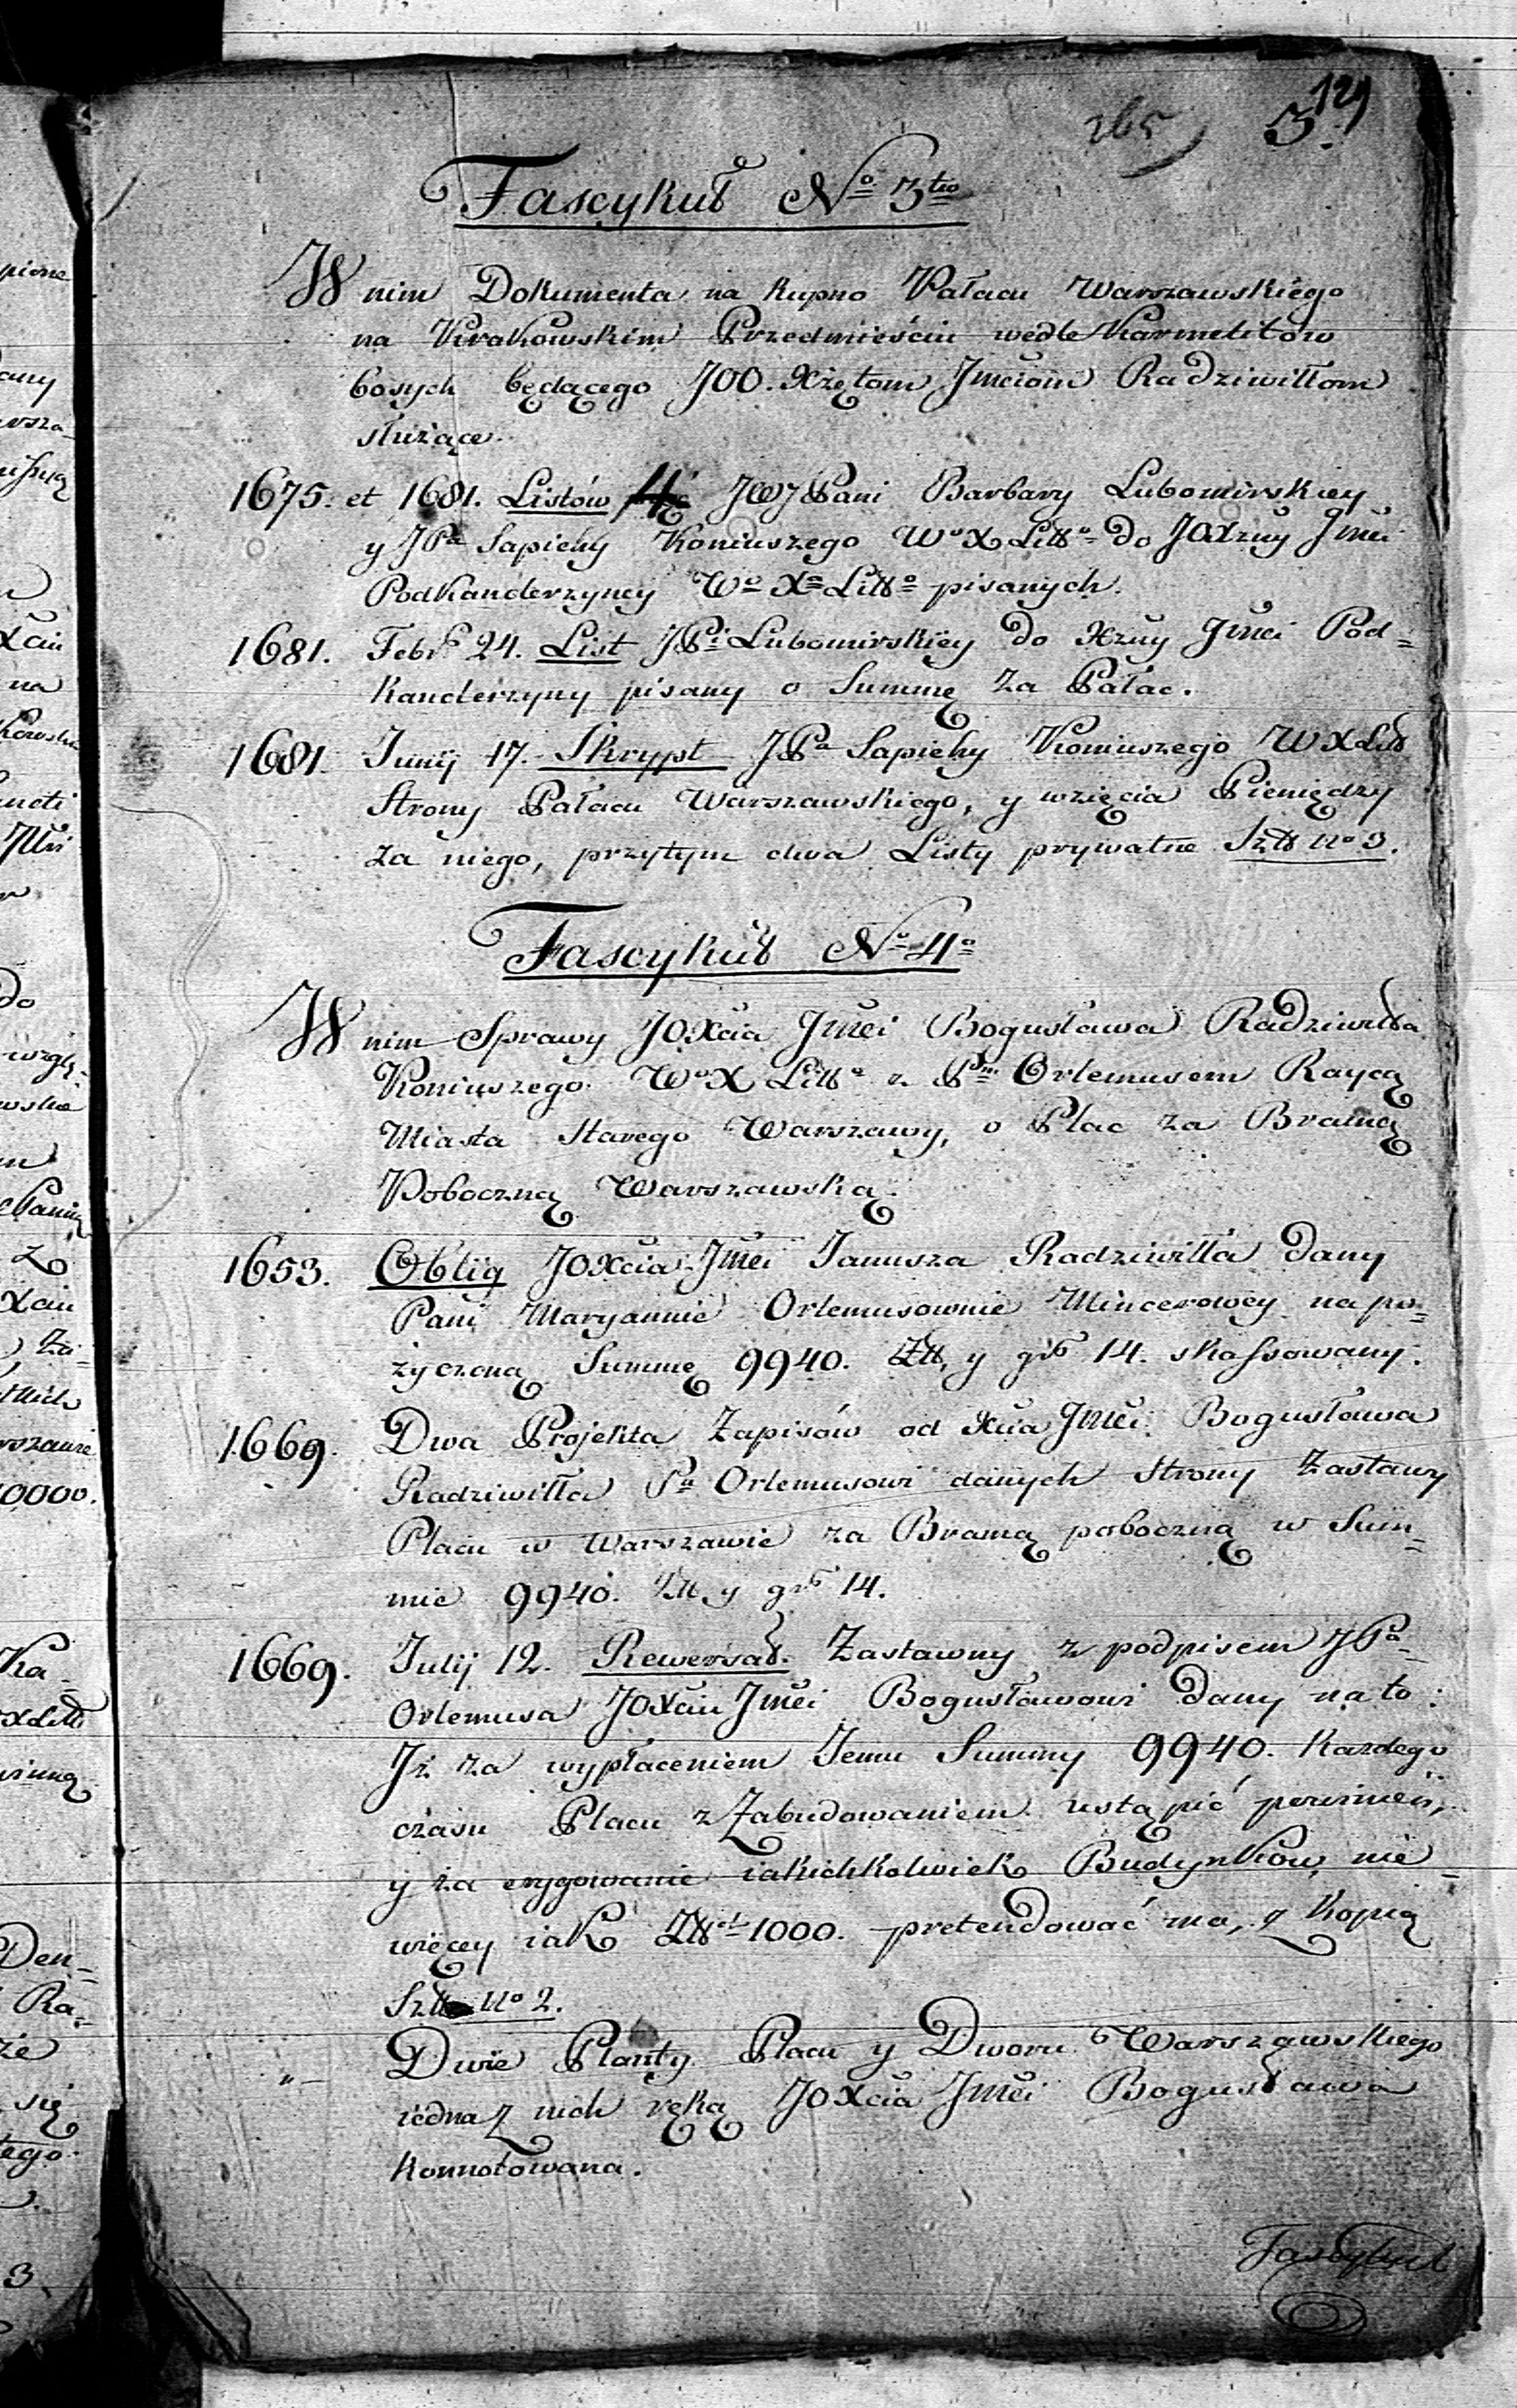 129
265 3.
Fascykuł No 3tio
W nim Dokumenta na kupno Pałacu Warszawskiego
na Krakowskim Przedmieściu wedle Karmelitów
bosych będącego JOO. Xżętom Jmciom Radziwiłłom
służące.
1675. et 1681. Listów 4 JWJPani Barbary Lubomirskiey
y JPa Sapiehy Koniuszego Wo X Litto do JOXzny Jmci
Podkanclerzyney Wo Xa Litto pisanych.
1681. Febr 24. List JPi Lubomirskiey do Xzny Jmci Pod=
kanclerzyny pisany o Summę za Pałac.
1681. Junij 17. Skrypt JPa Sapiehy Koniuszego WXLitt
Strony Pałacu Warszawskiego, y wzięcia Pieniędzy
za niego, przytym dwa Listy prywatne Sztt No 3.
Fascykuł No 4o
W nim Sprawy JOXcia Jmci Bogusława Radziwiłła
Koniuszego Wo X Litto z Pm Orlemusem Raycą
Miasta Starego Warszawy, o Plac za Bramą
Poboczną Warszawską.
1653. Oblig JOXcia Jmci Janusza Radziwiłła dany
Pani Maryannie Orlemusownie Mincerowey na po=
życzoną Summę 9940. Złł, y gr 14. skassowany.
1669. Dwa Projekta Zapisów od Xcia Jmci Bogusława
Radziwiłła Pu Orlemusowi danych strony Zastawy
Placu w Warszawie za Bramą poboczną w Sum=
mie 9940. Złł y gr 14.
1669. Julij 12. Rewersał Zastawny z podpisem JPa
Orlemusa JOXciu Jmci Bogusławowi dany na to:
Jż za wypłaceniem Jemu Summy 9940. każdego
czasu Placu z Zabudowaniem ustąpić powinien,
y za erygowanie iakichkolwiek Budynków nie
więcey iak Złł 1000. pretendować ma, z Kopią
Sztt No 2.
"- Dwie Planty Placu y Dworu Warszawskiego
iedna z nich ręką JOXcia Jmci Bogusława
konnotowana.
Fascykuł